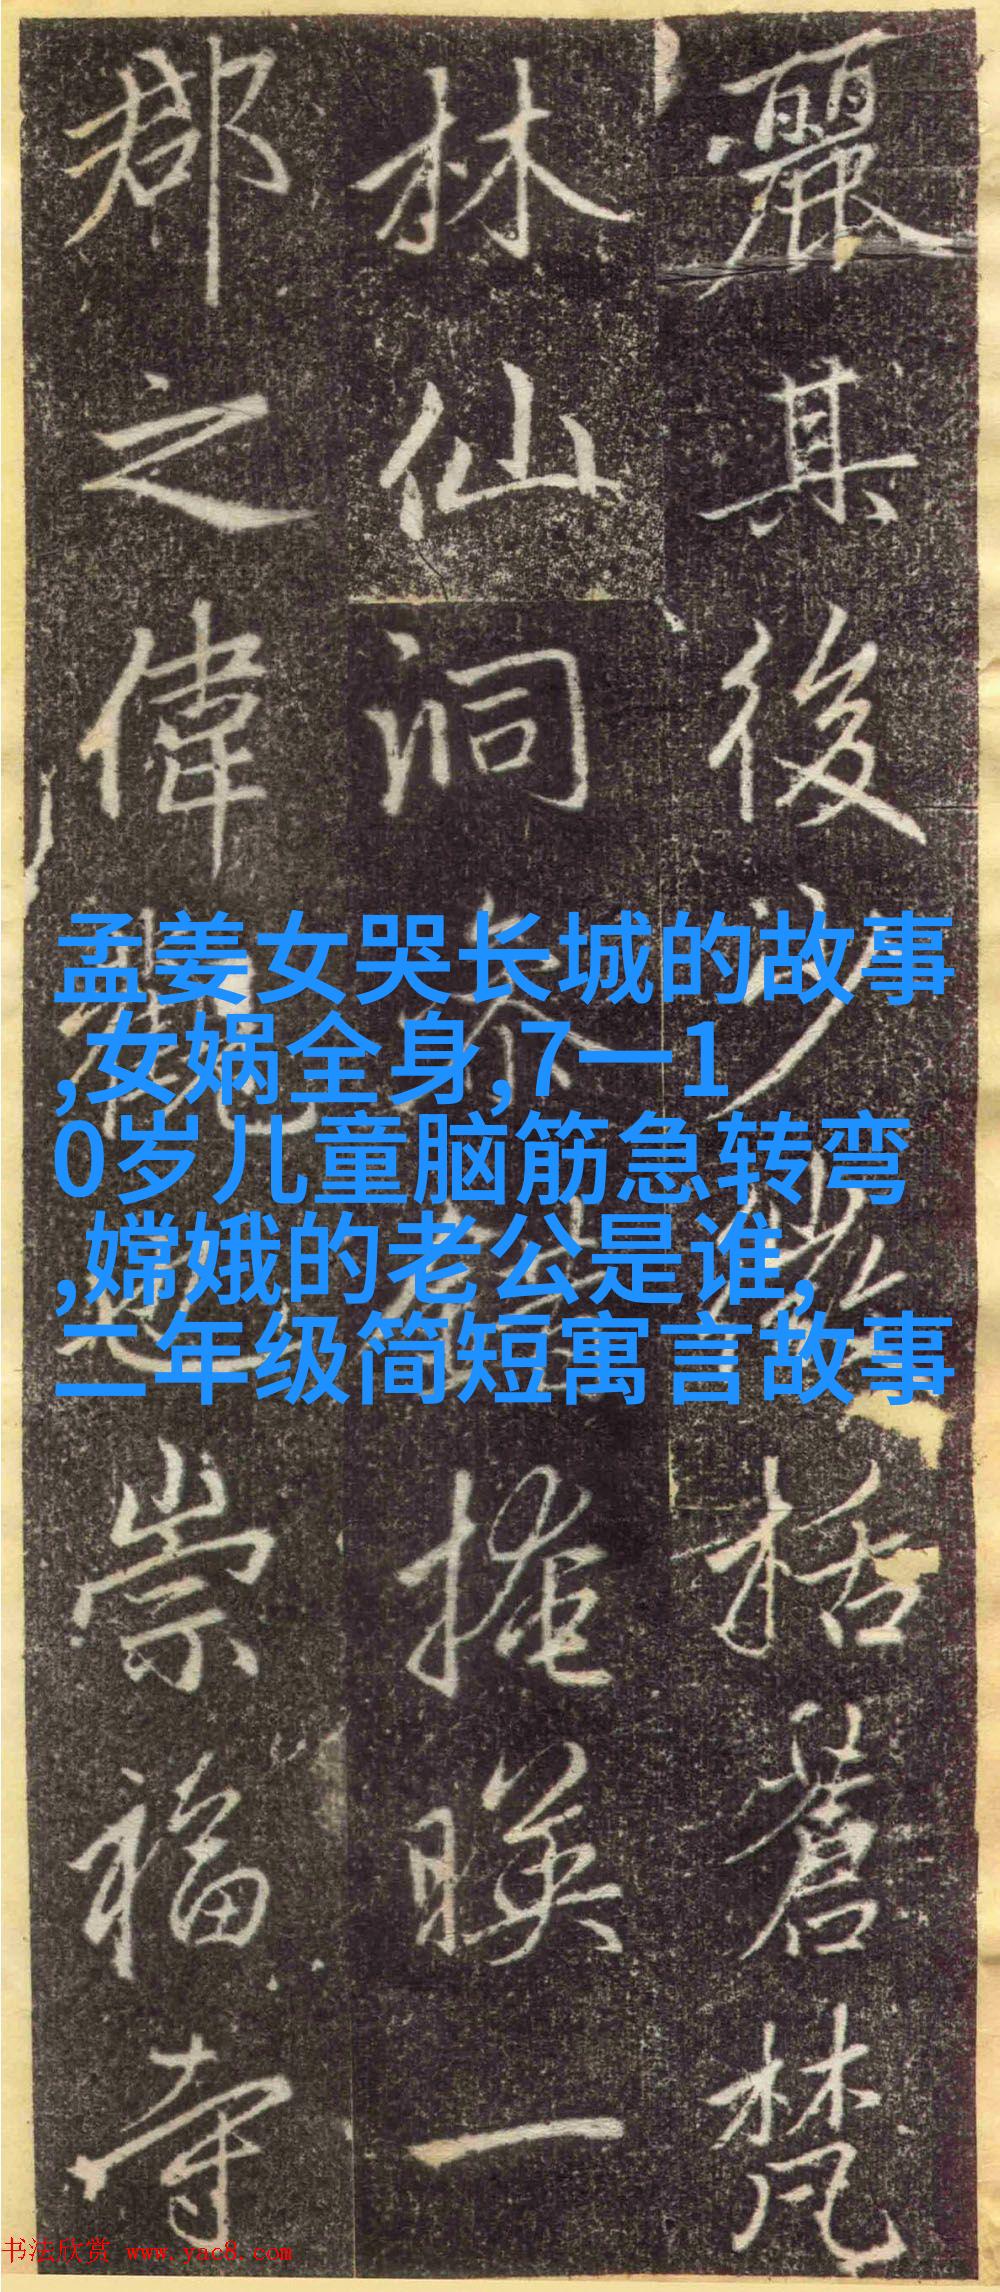 麗其後少微括蒼梵
林仙洞泰
掩暎一
郡之偉觀
崇福寺
孟姜女哭长城的故事
,女娲全身,7一1
0岁儿童脑筋急转弯
,嫦娥的老公是谁,
二年级简短寓言故事
书法欣赏 www.yac8.com